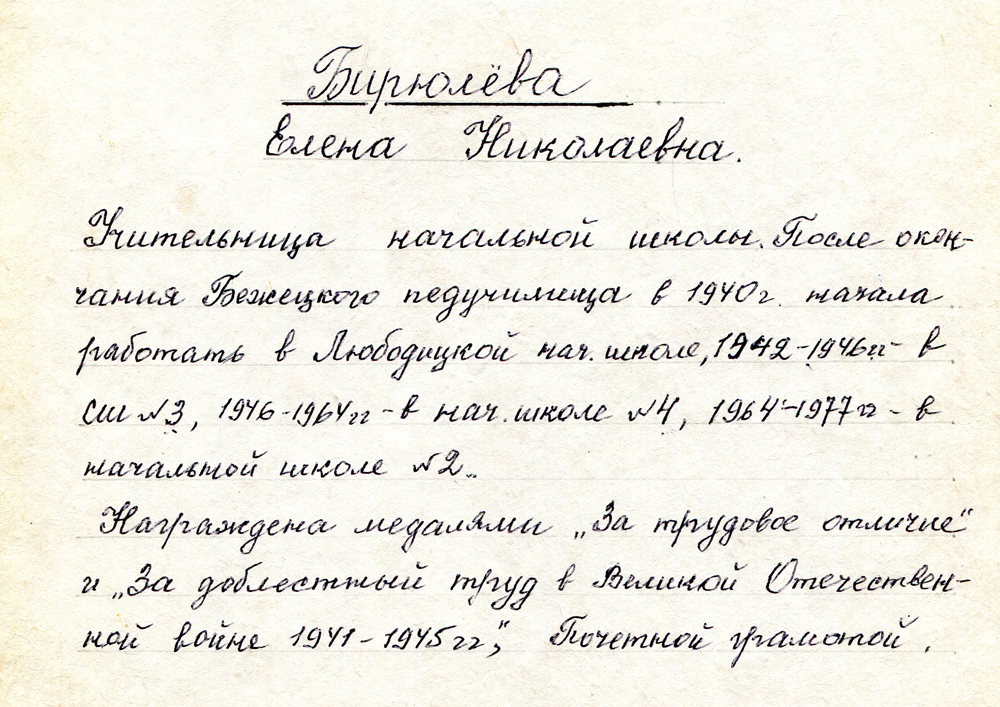 Бирюлёва
Елена Николаевна.
Учительница начальной школы. После окон-
чания Бежецкого педучилища в 1940г. начала
работать в Любодицкой нач. школе, 1942-1946гг - в
СШ №3, 1946-1964гг - в нач. школе №4, 1964-1977гг - в
начальной школе №2.
Награждена медалями „За трудовое отличие"
и „За доблестный труд в Великой Отечествен-
ной войне 1941-1945гг", Почетной грамотой.